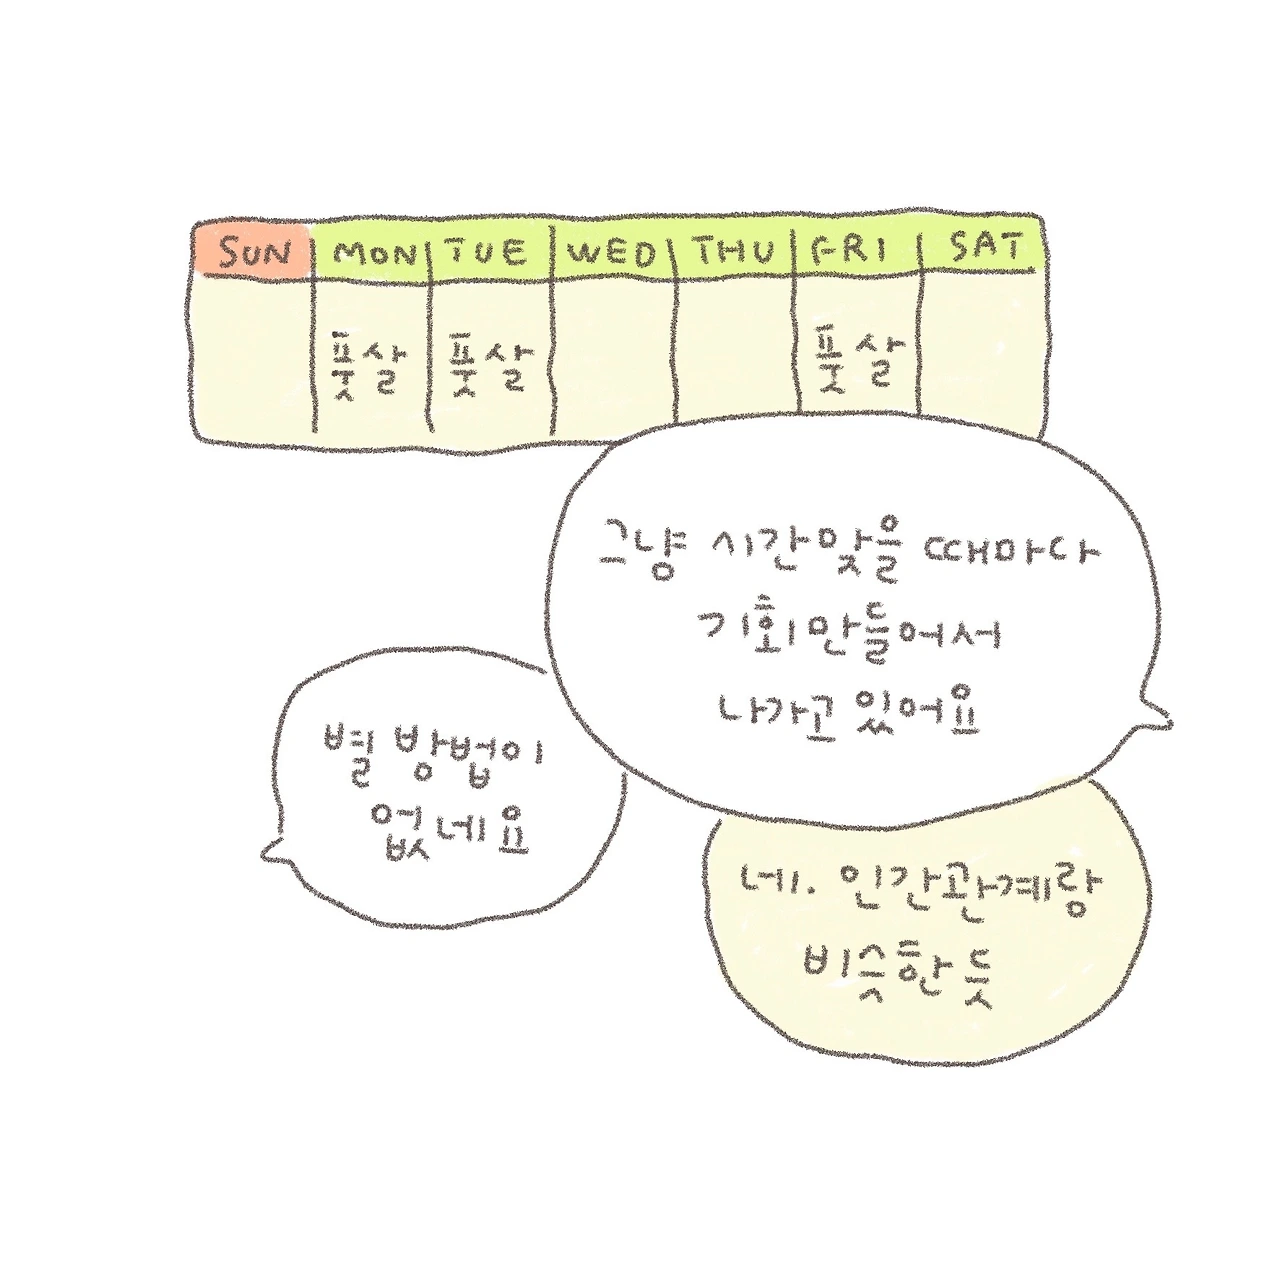 SUN MON TUE WED THU FRI SAT
풋살 풋살 풋살
그냥 시간맞을 때마다
기회만들어서
나가고 있어요
별 방법이
없네요
네. 인간관계랑
비슷한 듯